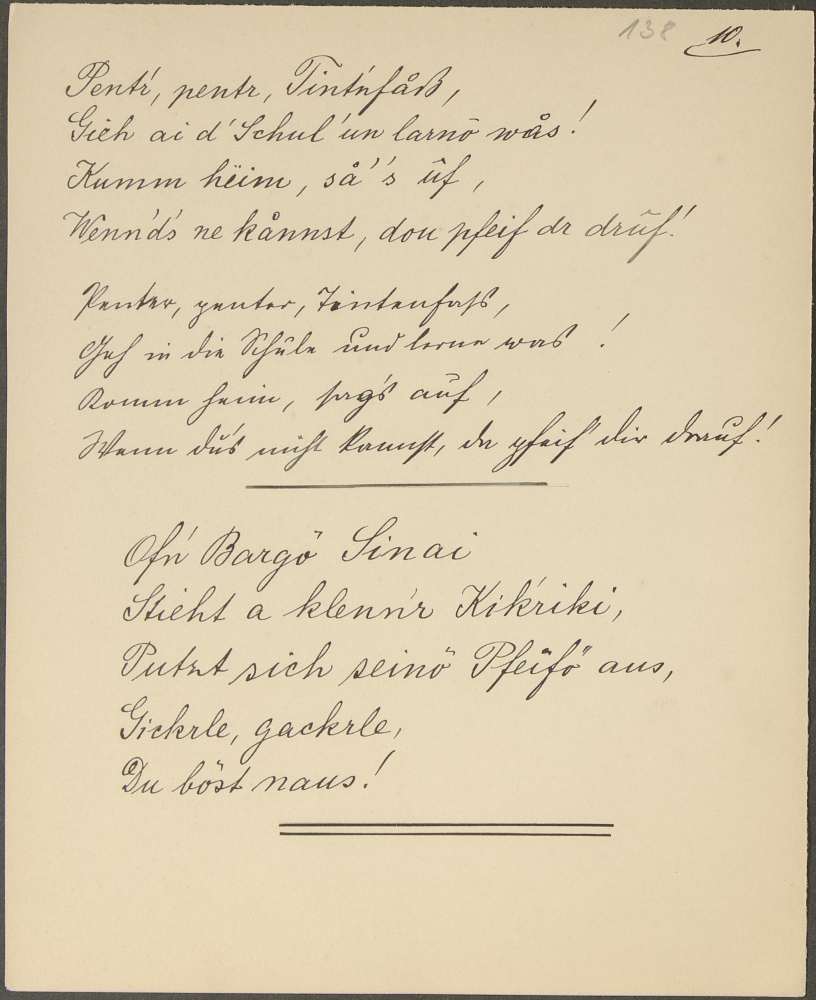 138 10.
Pentr', pentr, Tint'nfåß,
Gieh ai d' Schul' un larnō wås!
Kumm hëim, så' 's ûf,
Wenn'd's ne kånnst, dou pfeif dr drũf!
Penter, penter, Tintenfaß,
Geh in die Schule und lerne was!
Komm heim, sag's auf,
Wenn du's nicht kannst, da pfeif' dir drauf!
Ofn' Bargö Sinai
Stieht a klenn'r Kik'riki,
Putzt sich seinö Pfeifö aus,
Gickrle, gackrle,
Du böst naus!